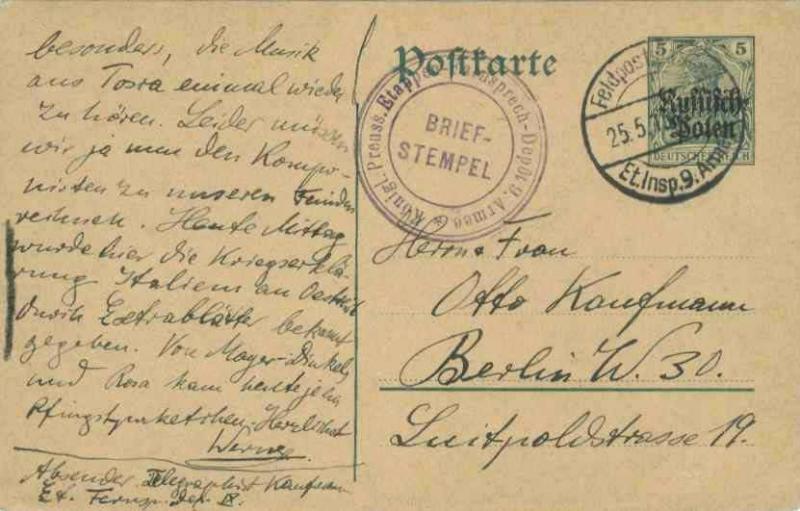 besonders, die Musik
aus Tosca einmal wieder
zu hören. Leider müssen
wir ja nun den Kompo-
nisten zu unseren Feinden
rechnen. Heute Mittag
wurde hier die Kriegserklä-
rung Italiens an Oestreich
durch Extrablätter bekannt
gegeben. Von Mayer-Dinkels
und Rosa kam heute je ein
Pfingstpaketchen. Herzlichst
Werner.
Absender Telegraphist Kaufmann
Et. Fernspr. Dep. IX.
Postkarte
Königl. Preuss. Etappen Fernsprech-Depot 9. Armee
BRIEF-
STEMPEL
Feldpost
25.5.
Et.Insp.9. Armee
5 5
Russisch-
Polen
DEUTSCHES REICH
Herrn & Frau
Otto Kaufmann
Berlin W. 30.
Luitpoldstrasse 19.